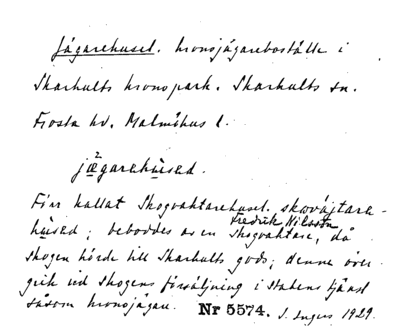 Jägarehuset. kronojägareboställe i
Skarhults kronopark. Skarhults sn.
Frosta hd. Malmöhus l.
jægarehùsəd.
Förr kallat Skogvaktarehuset. skowájtare-
hùsəd; beboddes av en Skogvaktare, då
Fredrik Nilsson
skogen hörde till Skarhults gods; denne över-
gick vid skogens försäljning i statens tjänst
såsom kronojägare. Nr 5574. J. Ingers 1929.